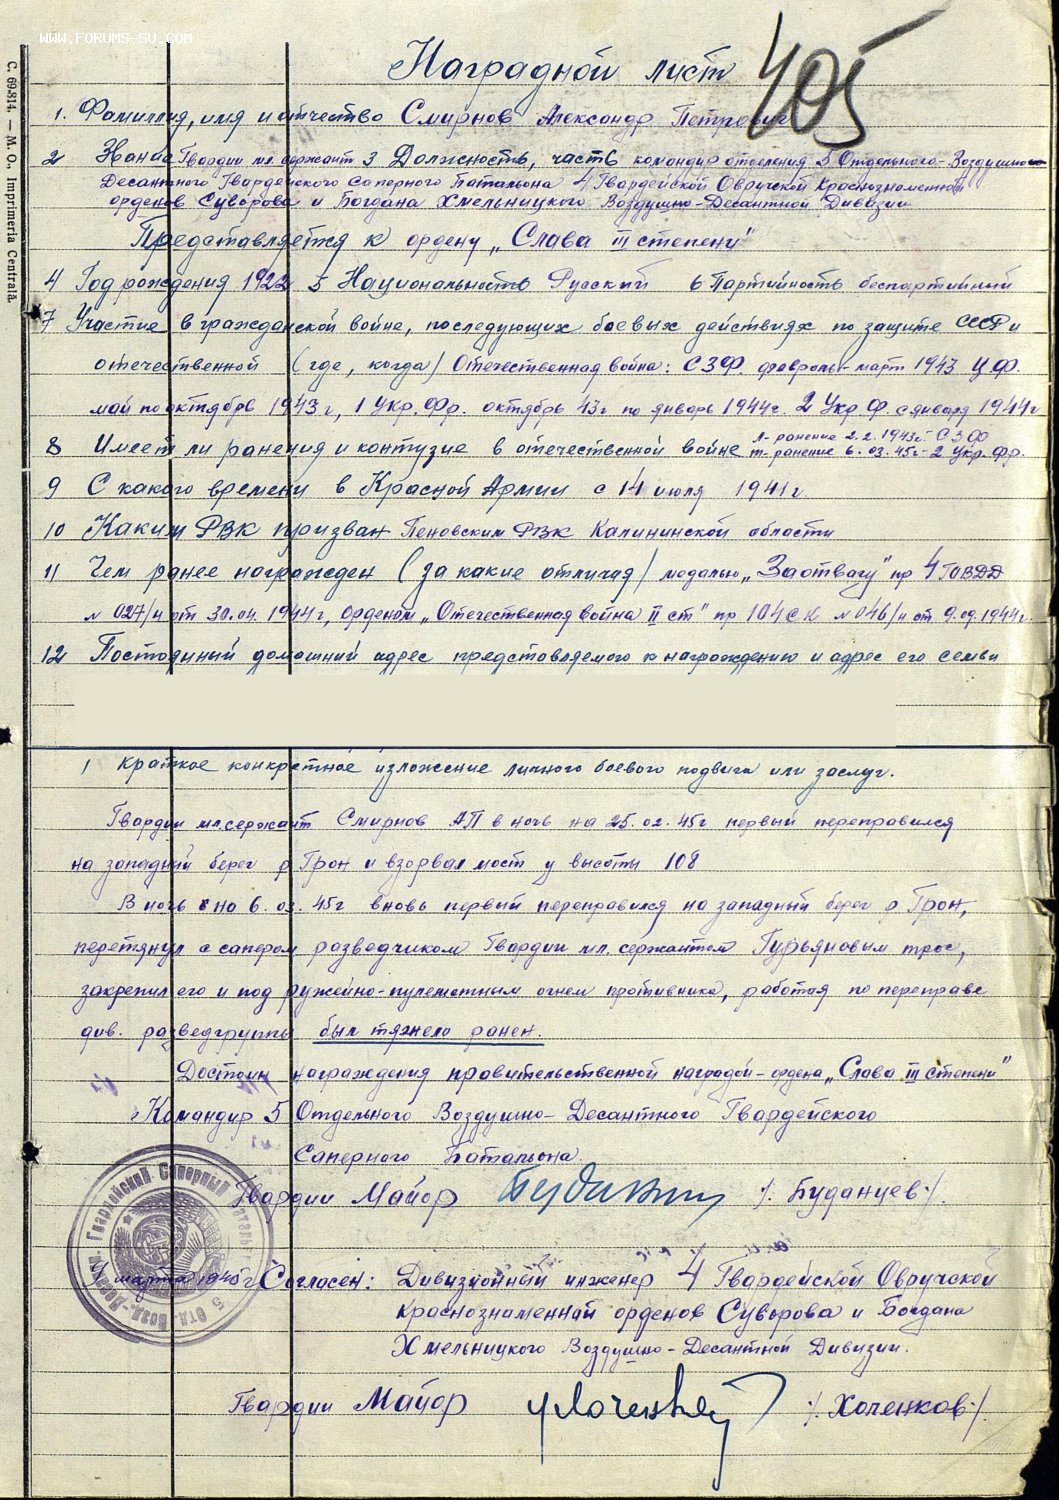 WWW.FORUMS-SU.COM
С. 69.814. — М. О., Imprimeria Centrală.
Наградной лист
405
1. Фамилия, имя и отчество Смирнов Александр Петрович
2 Звание Гвардии мл. сержант 3 Должность, часть командир отделения 5 Отдельного-Воздушно-
Десантного Гвардейского Саперного Батальона 4 Гвардейской Овручской Краснознаменной
орденов Суворова и Богдана Хмельницкого Воздушно-Десантной Дивизии
Представляется к ордену „Слава III степени"
4 Год рождения 1922 5 Национальность Русский 6 Партийность беспартийный
7 Участие в гражданской войне, последующих боевых действиях по защите СССР и
отечественной (где, когда) Отечественная война: СЗФ. февраль-март 1943 Ц.Ф.
май по октябрь 1943г, 1 Укр. Фр. октябрь 43г по январь 1944г. 2 Укр. Ф. с января 1944г
8 Имеет ли ранения и контузие в отечественной войне л-ранение 2.2.1943г. СЗФ
т-ранение 6.03.45г-2 Укр. Фр.
9 С какого времени в Красной Армии с 14 июля 1941г.
10 Каким РВК призван Пеновским РВК Калининской области
11 Чем ранее награжден (за какие отличая) медалью „За отвагу" пр 4 ГОВДД
N 027/н от 30.04.1944г, Орденом „Отечественная война II ст" пр 104 СК N 046/н от 9.09.1944г.
12 Постоянный домашний адрес представляемого к награждению и адрес его семьи
1 Краткое конкретное изложение личного боевого подвига или заслуг.
Гвардии мл. сержант Смирнов АП в ночь на 25.02.45г первый переправился
на западный берег р Грон и взорвал мост у высоты 108
В ночь на 6.03.45г вновь первый переправился на западный берег р Грон,
перетянул с сапером разведчиком Гвардии мл. сержантом Гурьяновым трос,
закрепил его и под ружейно-пулеметным огнем противника, работая по переправе
див. разведгруппы был тяжело ранен.
Достоин награждения правительственной наградой-ордена „Слава III степени"
Командир 5 Отдельного Воздушно-Десантного Гвардейского
Саперного Батальона
Гвардии Майор /. Буданцев./.
марта 1945г Согласен: Дивизионный инженер 4 Гвардейской Овручской
Краснознаменной орденов Суворова и Богдана
Хмельницкого Воздушно-Десантной Дивизии.
Гвардии Майор /. Хоченков./.